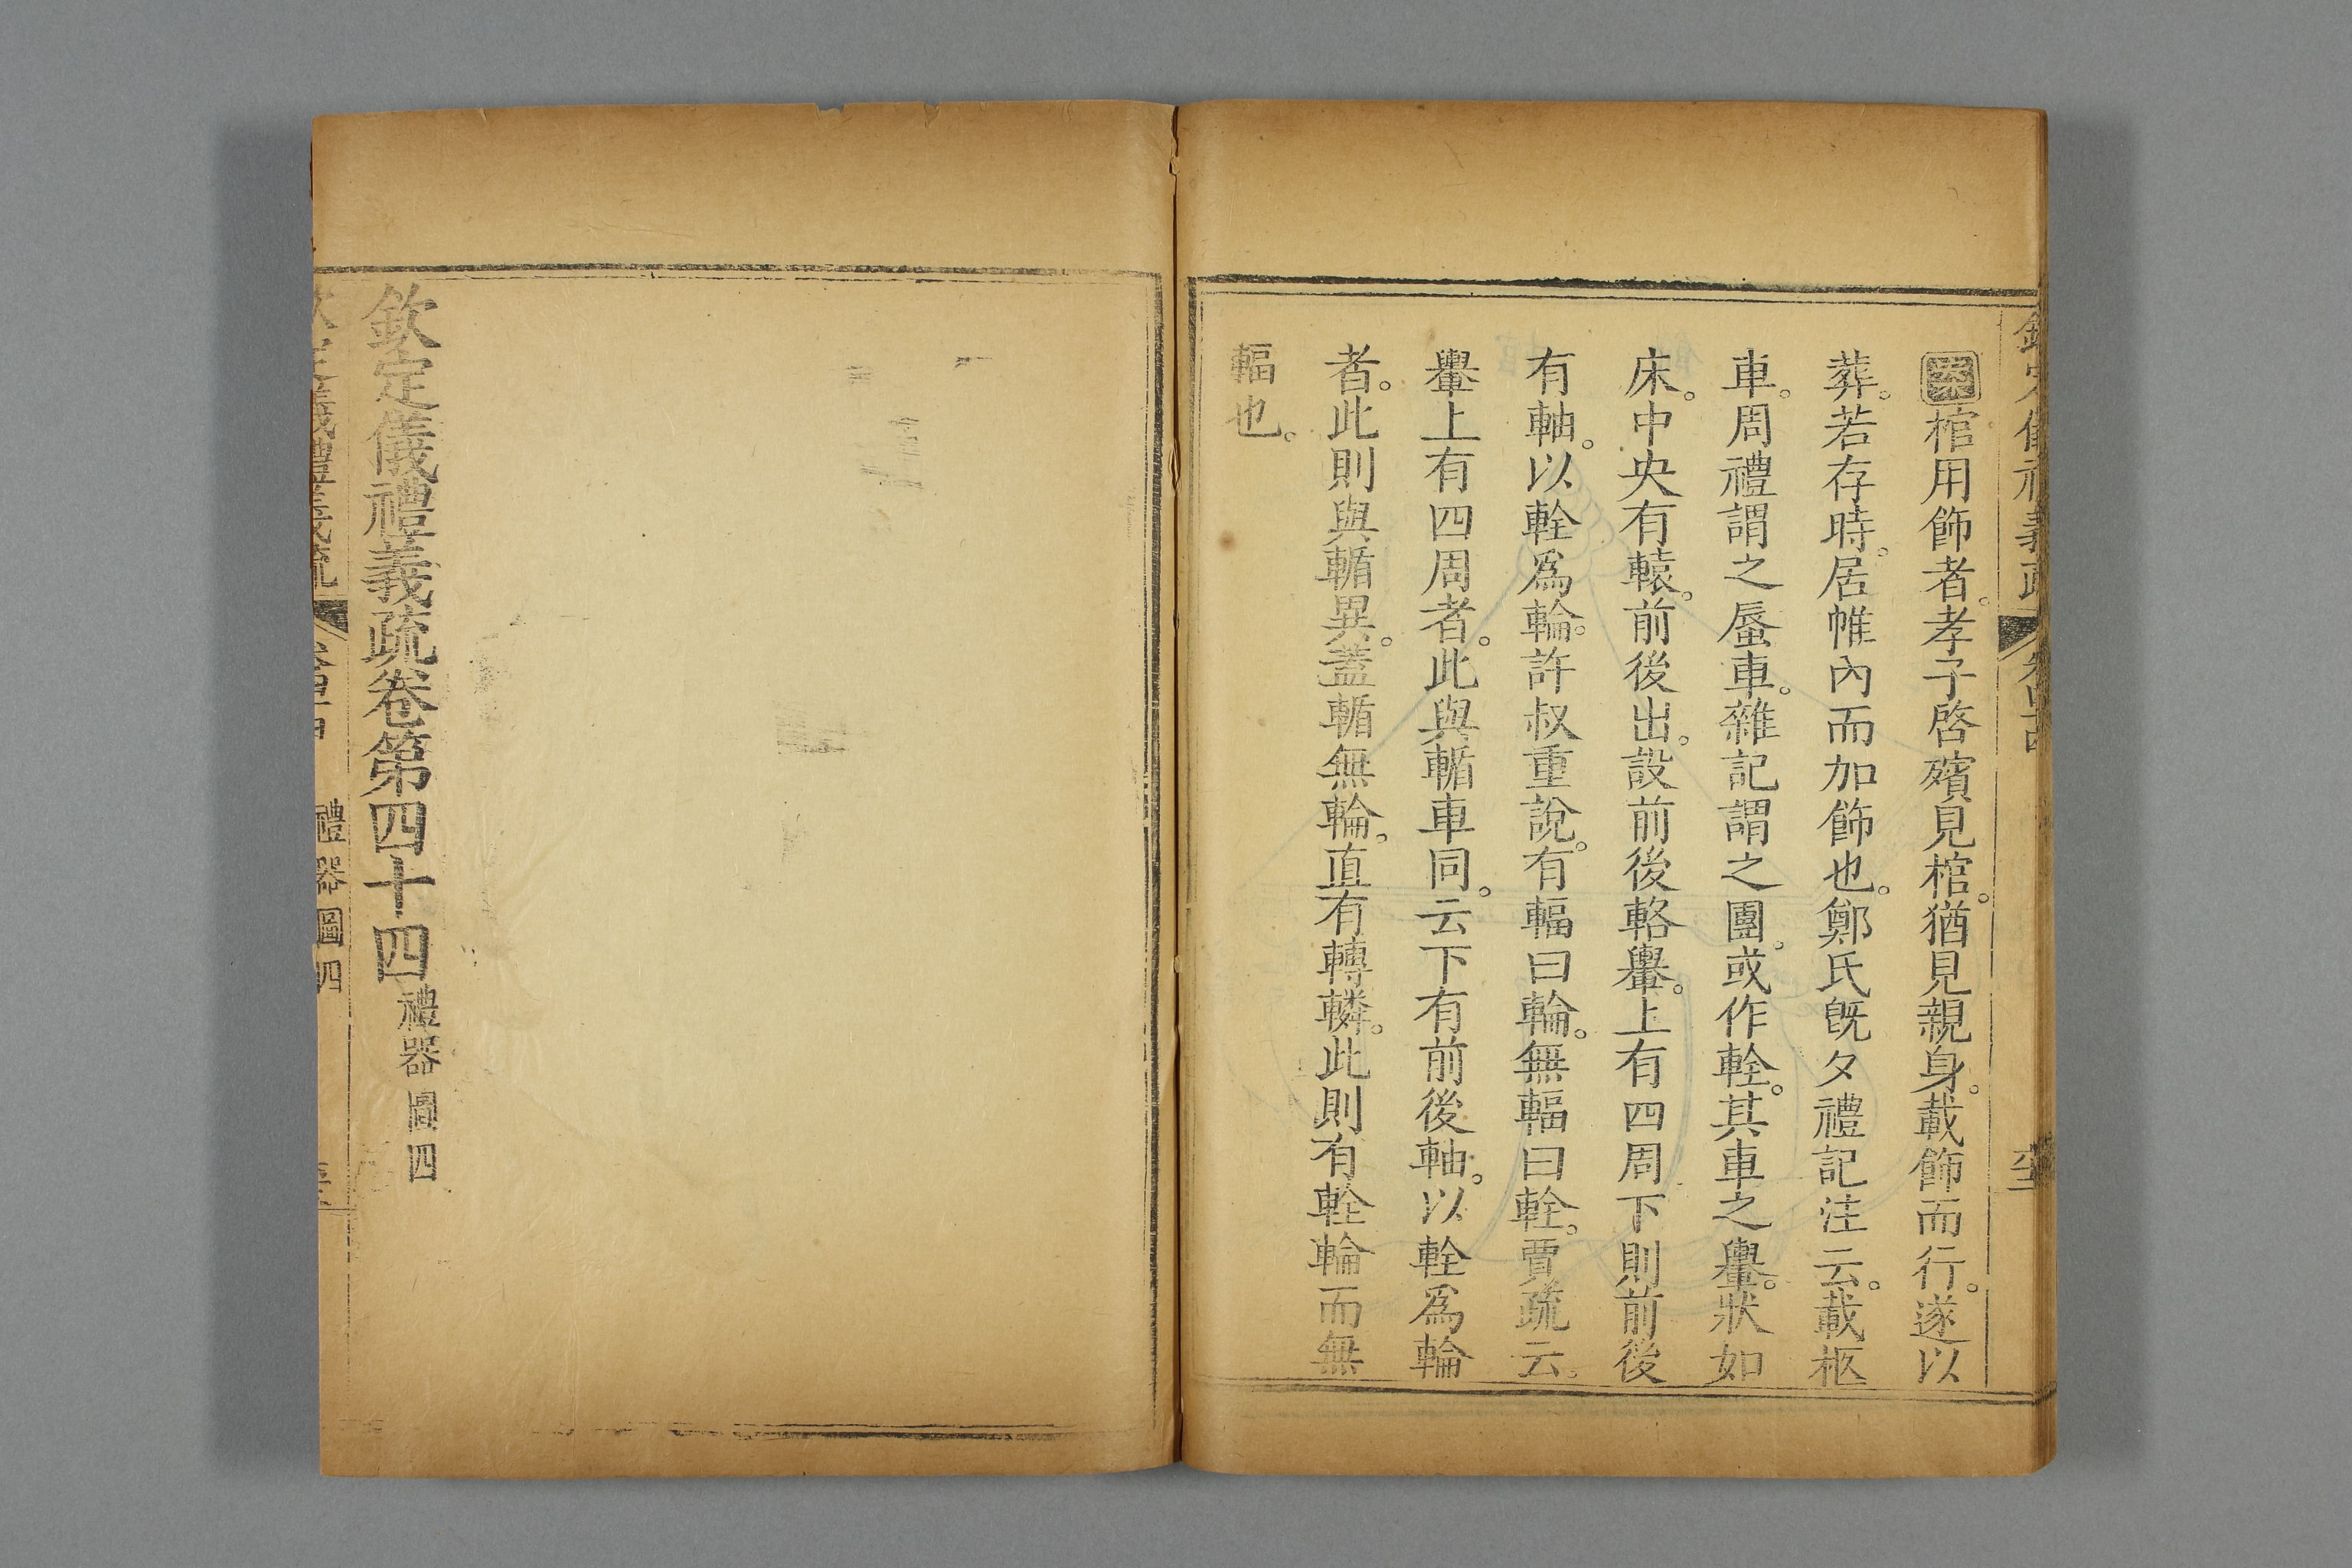 案棺用飾者。孝子啓殯見棺。猶見親身。載飾而行。遂以
葬。若存時。居帷內而加飾也。鄭氏既夕禮記注云。載柩
車。周禮謂之蜃車。雜記謂之團。或作輇。其車之轝。狀如
床。中央有轅。前後出。設前後輅轝。上有四周下則前後
有軸。以輇爲輪。許叔重說。有輻曰輪。無輻曰輇。賈疏云。
轝上有四周者。此與輴車同。云下有前後軸。以輇爲輪
者。此則與輴異。蓋輴無輪。直有轉轔。此則有輇輪而無
輻也。
欽定儀禮義疏卷第四十四禮器圖四
禮器圖四